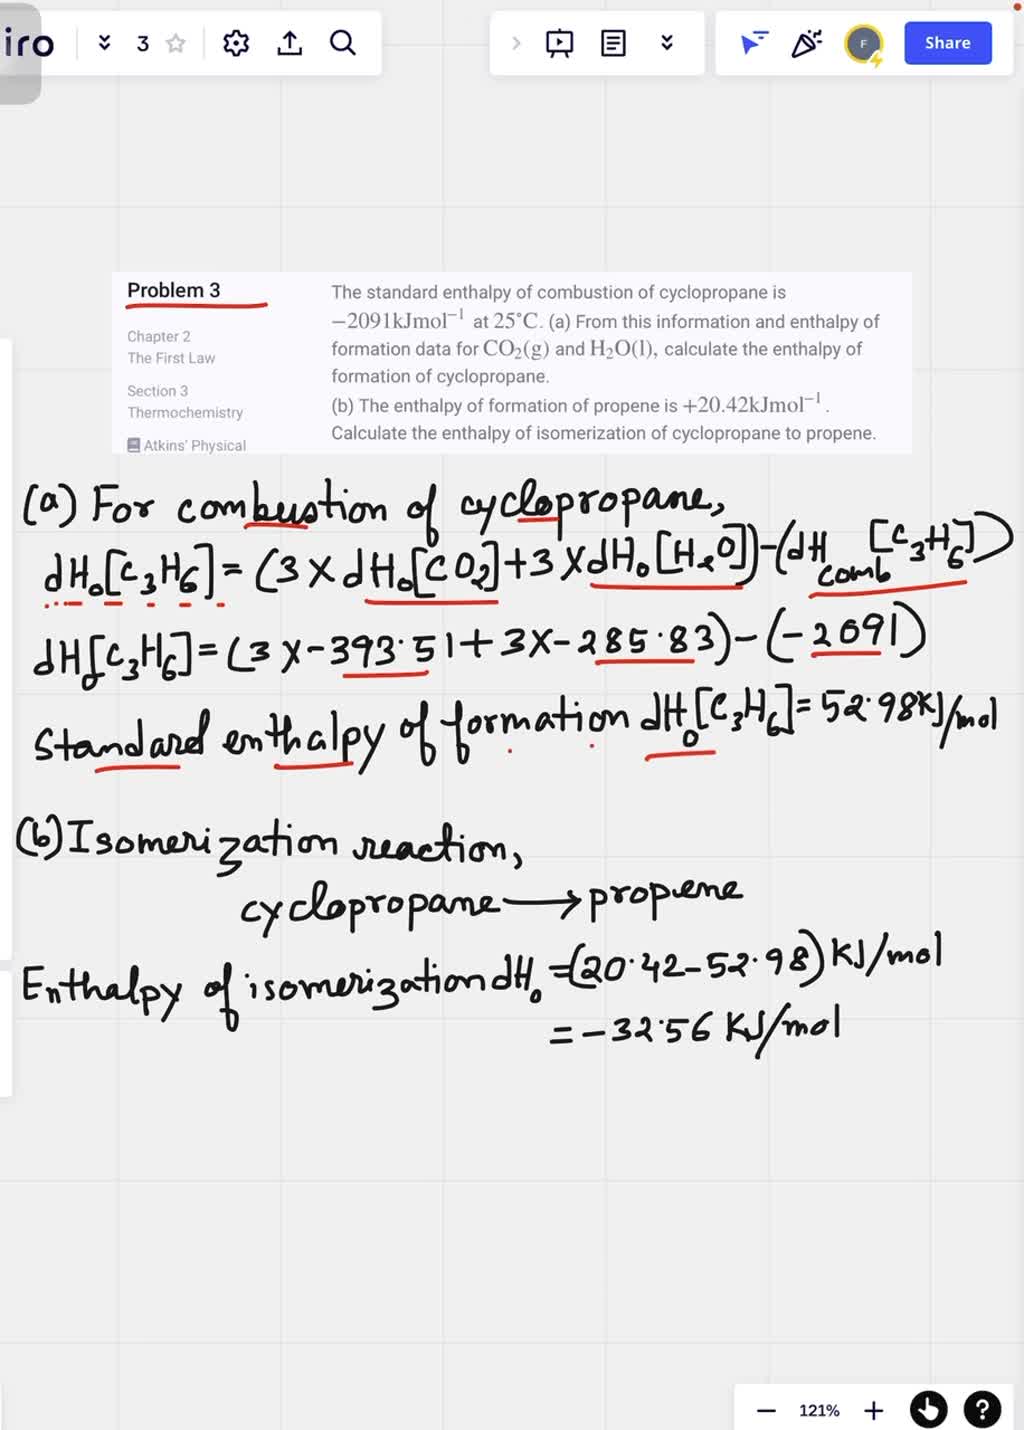 iro
3
F
Share
Problem 3
Chapter 2
The First Law
Section 3
Thermochemistry
Atkins' Physical
The standard enthalpy of combustion of cyclopropane is
−2091kJmol⁻¹ at 25°C. (a) From this information and enthalpy of
formation data for CO₂(g) and H₂O(l), calculate the enthalpy of
formation of cyclopropane.
(b) The enthalpy of formation of propene is +20.42kJmol⁻¹.
Calculate the enthalpy of isomerization of cyclopropane to propene.
(a) For combustion of cyclopropane,
dH₀[C₃H₆] = (3 × dH₀[CO₂] + 3 × dH₀[H₂O]) − (dH comb [C₃H₆])
dH₀[C₃H₆] = (3 × −393.51 + 3 × −285.83) − (−2091)
Standard enthalpy of formation dH₀[C₃H₆] = 52.98KJ/mol
(b) Isomerization reaction,
cyclopropane ⟶ propene
Enthalpy of isomerization dH₀ = (20.42 − 52.98) KJ/mol
= −32.56 KJ/mol
121%
?